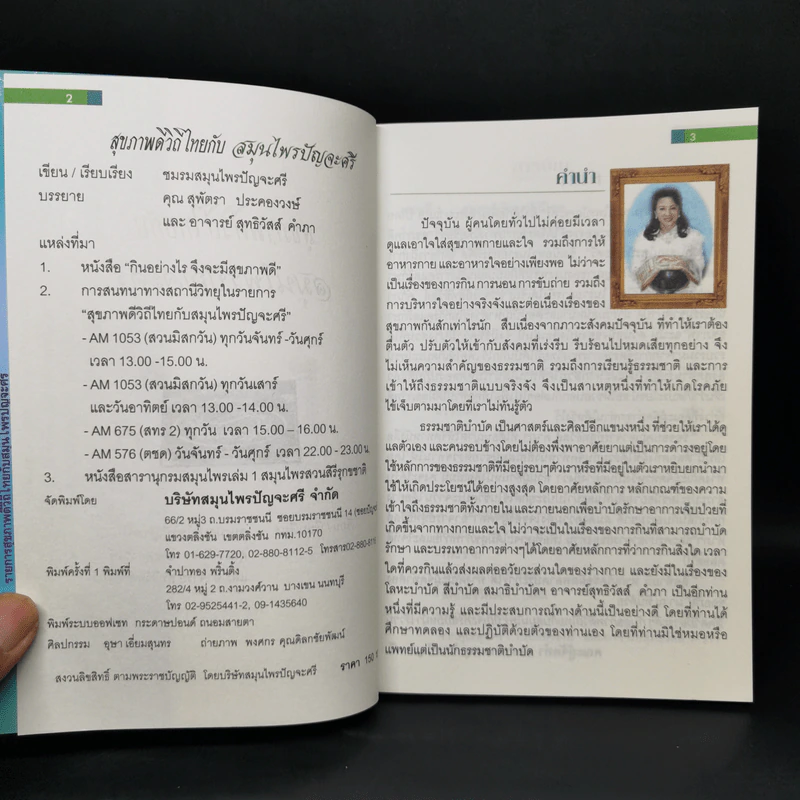 2
สุขภาพดีวิถีไทยกับ สมุนไพรปัญจะศรี
เขียน / เรียบเรียง ชมรมสมุนไพรปัญจะศรี
บรรยาย คุณ สุพัตรา ประคองวงษ์
และ อาจารย์ สุทธิวัสส์ คำภา
แหล่งที่มา
1. หนังสือ "กินอย่างไร จึงจะมีสุขภาพดี"
2. การสนทนาทางสถานีวิทยุในรายการ
"สุขภาพดีวิถีไทยกับสมุนไพรปัญจะศรี"
- AM 1053 (สวนมิสกวัน) ทุกวันจันทร์ -วันศุกร์
เวลา 13.00 -15.00 น.
- AM 1053 (สวนมิสกวัน) ทุกวันเสาร์
และวันอาทิตย์ เวลา 13.00 -14.00 น.
- AM 675 (สทร 2) ทุกวัน เวลา 15.00 – 16.00 น.
- AM 576 (ตชด) วันจันทร์ - วันศุกร์ เวลา 22.00 - 23.00 น.
3. หนังสือสารานุกรมสมุนไพรเล่ม 1 สมุนไพรสวนสิรีรุกขชาติ
จัดพิมพ์โดย บริษัทสมุนไพรปัญจะศรี จำกัด
66/2 หมู่3 ถ.บรมราชชนนี ซอยบรมราชชนนี 14
แขวงตลิ่งชัน เขตตลิ่งชัน กทม.10170
โทร 01-629-7720, 02-880-8112-5
พิมพ์ครั้งที่ 1 พิมพ์ที่ จำปาทอง พริ้นติ้ง
282/4 หมู่ 2 ถ.งามวงศ์วาน บางเขน นนทบุรี
โทร 02-9525441-2, 09-1435640
พิมพ์ระบบออฟเซท กระดาษปอนด์ ถนอมสายตา
ศิลปกรรม อุษา เอี่ยมสุนทร ถ่ายภาพ พงศกร คุณดิลกชัยพัฒน์
สงวนลิขสิทธิ์ ตามพระราชบัญญัติ โดยบริษัทสมุนไพรปัญจะศรี ราคา 150
รายการสุขภาพดีวิถีไทยกับสมุนไพรปัญจะศรี
3
คำนำ
ปัจจุบัน ผู้คนโดยทั่วไปไม่ค่อยมีเวลา
ดูแลเอาใจใส่สุขภาพกายและใจ รวมถึงการให้
อาหารกาย และอาหารใจอย่างเพียงพอ ไม่ว่าจะ
เป็นเรื่องของการกิน การนอน การขับถ่าย รวมถึง
การบริหารใจอย่างจริงจังและต่อเนื่องเรื่องของ
สุขภาพกันสักเท่าไรนัก สืบเนื่องจากภาวะสังคมปัจจุบัน ที่ทำให้เราต้อง
ตื่นตัว ปรับตัวให้เข้ากับสังคมที่เร่งรีบ รีบร้อนไปหมดเสียทุกอย่าง จึง
ไม่เห็นความสำคัญของธรรมชาติ รวมถึงการเรียนรู้ธรรมชาติ และการ
เข้าให้ถึงธรรมชาติแบบจริงจัง จึงเป็นสาเหตุหนึ่งที่ทำให้เกิดโรคภัย
ไข้เจ็บตามมาโดยที่เราไม่ทันรู้ตัว
ธรรมชาติบำบัด เป็นศาสตร์และศิลป์อีกแขนงหนึ่ง ที่ช่วยให้เราได้ดู
แลตัวเอง และคนรอบข้างโดยไม่ต้องพึ่งพาอาศัยยาแต่เป็นการดำรงอยู่โดย
ใช้หลักการของธรรมชาติที่มีอยู่รอบๆตัวเราหรือที่มีอยู่ในตัวเราหยิบยกนำมา
ใช้ให้เกิดประโยชน์ได้อย่างสูงสุด โดยอาศัยหลักการ หลักเกณฑ์ของความ
เข้าใจถึงธรรมชาติทั้งภายใน และภายนอกเพื่อบำบัดรักษาอาการเจ็บป่วยที่
เกิดขึ้นจากทางกายและใจ ไม่ว่าจะเป็นในเรื่องของการกินที่สามารถบำบัด
รักษา และบรรเทาอาการต่างๆได้โดยอาศัยหลักการที่ว่าการกินสิ่งใด เวลา
ใดที่ควรกินแล้วส่งผลต่ออวัยวะส่วนใดของร่างกาย และยังมีในเรื่องของ
โลหะบำบัด สีบำบัด สมาธิบำบัดฯ อาจารย์สุทธิวัสส์ คำภา เป็นอีกท่าน
หนึ่งที่มีความรู้ และมีประสบการณ์ทางด้านนี้เป็นอย่างดี โดยที่ท่านได้
ศึกษาทดลอง และปฏิบัติด้วยตัวของท่านเอง โดยที่ท่านมิใช่หมอหรือ
แพทย์แต่เป็นนักธรรมชาติบำบัด